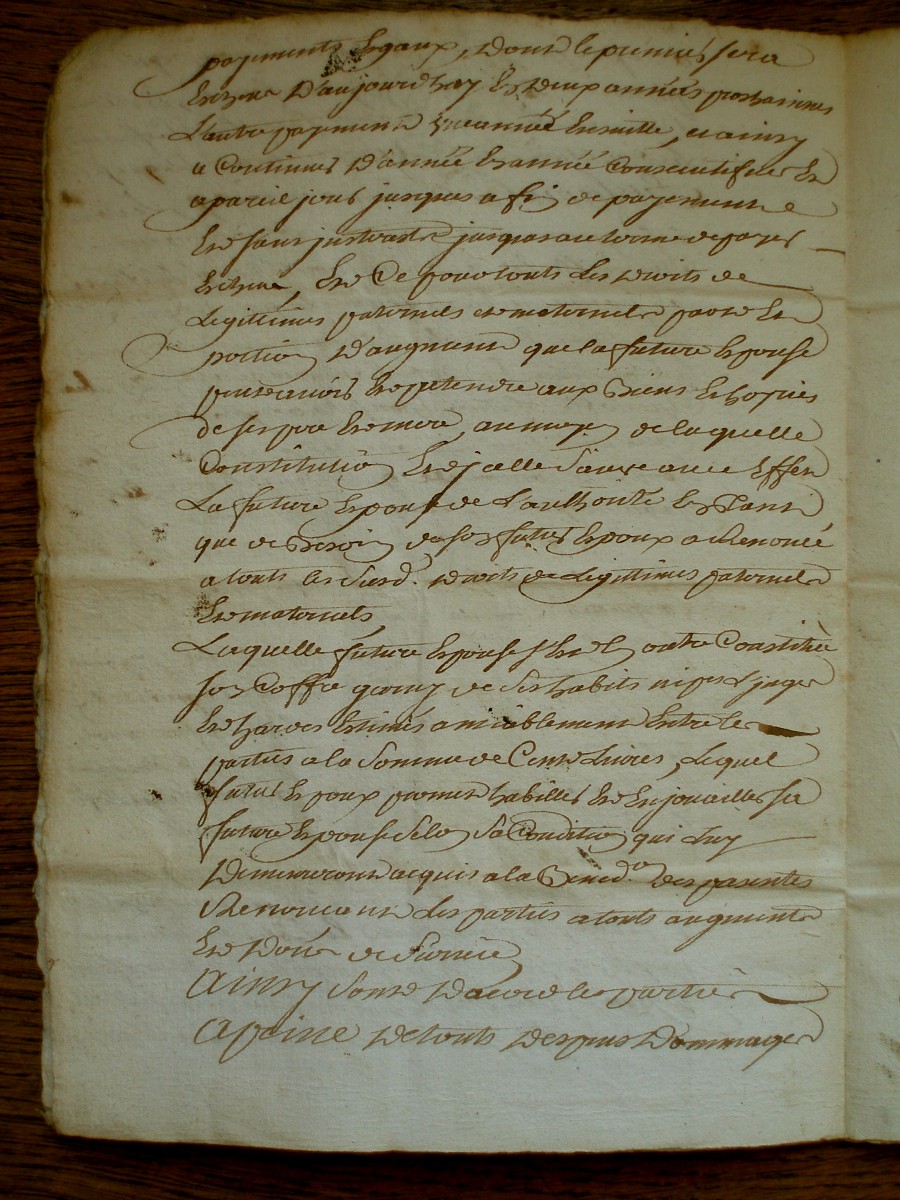 payements Egaux, dont le premier sera
Echeu d'aujourdhuy En deux années prochaines
L'autre payement une année Ensuitte, et ainsy
a Continuer d'année En année Consecutifves En
a pareil jour jusques a fin de payement
Et sans jnterest jusques au terme de payes
Echeu, Et Ce pour touts Les droits de
Legitimes paternels et maternels part Et
portion d'augment que la future Epouse
pourr avoir Et pretendre aux Biens Et hoyries
de ses pere Et mere, au moyen de laquelle
Constitution Et jcelle Sauve avec Effet
La future Epouse de L'authorité En tant
que de Besoin de son futur Epoux a Renoncé
a touts les Susd. droits de Legittimes paternels
Et maternels
Laquelle future Epouse s'Est En outre Constitüée
son Coffre garny de ses habits nipes Linges
Et hardes Estimés amiablement Entre les
parties a la Somme de Cent Livres, Lequel
futur Epoux promet habiller Et Enjoualler sa
future Epouse Selon Sa Condition qui Luy
Demeureront acquis a la Bened.on des presentes
Renonceant Les parties a touts augments
Et Dons de Survie
Ainsy Sont D'acord les parties
A peine De touts Despens Dommages